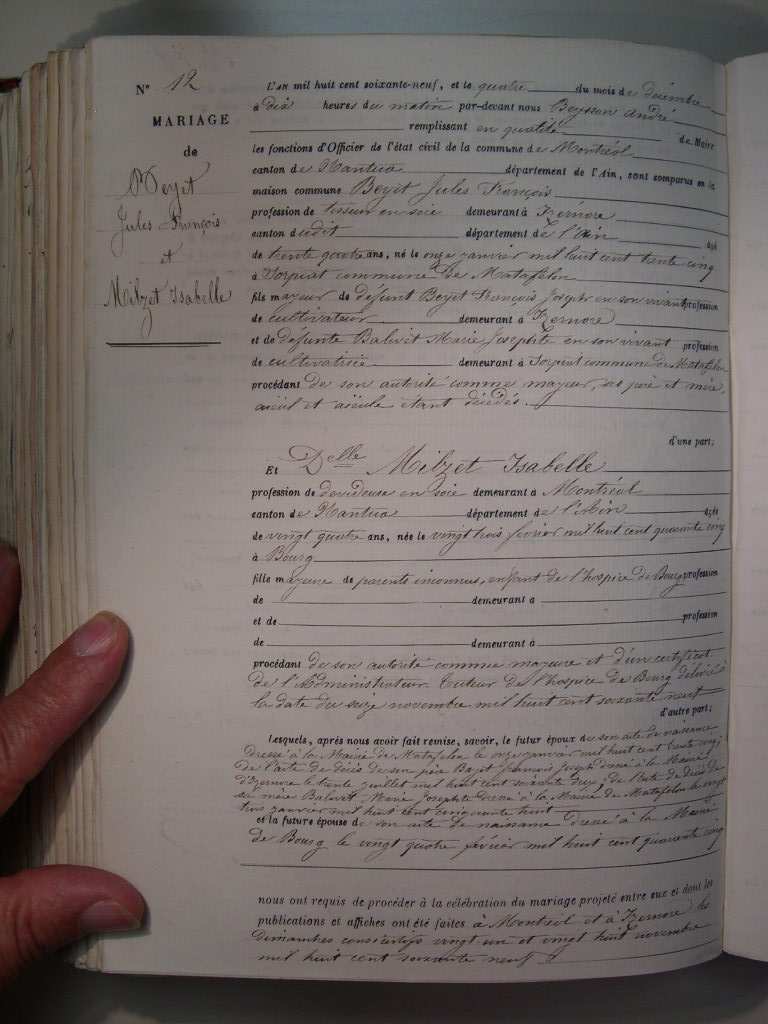 N° 12
MARIAGE
de
Beyet
Jules François
et
Milzet Isabelle
L'AN mil huit cent soixante-neuf, et le quatre du mois de décembre
à dix heures du matin par-devant nous Beysson andré
remplissant en qualité de Maire
les fonctions d'Officier de l'état civil de la commune de Montréal
canton de Nantua département de l'Ain, sont comparus en la
maison commune Beyet Jules François
profession de tisseur en soie demeurant à Izernore
canton dudit département de l'Ain âgé
de trente quatre ans, né le onze janvier mil huit cent trente cinq
à Sorpiat commune de Matafelon
fils mayeur de défunt Beyet François Joseph en son vivant profession
de cultivateur demeurant à Izernore
et de défunte Balivet Marie Josephte en son vivant profession
de cultivatrice demeurant à Sorpiat commune de Matafelon
procédant de son autorité comme mayeur, ses père et mère,
aieul et aieule étant décédés.
d'une part;
Et Delle Milzet Isabelle
profession de devideuse en soie demeurant à Montréal
canton de Nantua département de l'Ain âgée
de vingt quatre ans, née le vingt trois février mil huit cent quarante cinq
à Bourg
fille mayeure de parents inconnus, enfant de l'hospice de Bourg profession
de demeurant à
et de profession
de demeurant à
procédant de son autorité comme mayeure et d'un certificat
de l'Administrateur Tuteur de l'hospice de Bourg délivré à
la date du seize novembre mil huit cent soixante neuf
d'autre part;
Lesquels, après nous avoir fait remise, savoir, le futur époux de son acte de naissance
Dressé à la Mairie de Matafelon le onze janvier mil huit cent trente cinq;
de l'acte de décès de son père Beyet François Joseph dressé à la Mairie
d'Izernore le trente juillet mil huit cent soixante deux, de l'acte de décès de
sa mère Balivet Marie Josephte dressé à la Mairie de Matafelon le vingt
trois janvier mil huit cent cinquante huit
et la future épouse de son acte de naissance dressé à la Mairie
de Bourg le vingt quatre février mil huit cent quarante cinq
nous ont requis de procéder à la célébration du mariage projeté entre eux et dont les
publications et affiches ont été faites à Montréal et à Izernore les
dimanches consécutifs vingt un et vingt huit novembre
mil huit cent soixante neuf